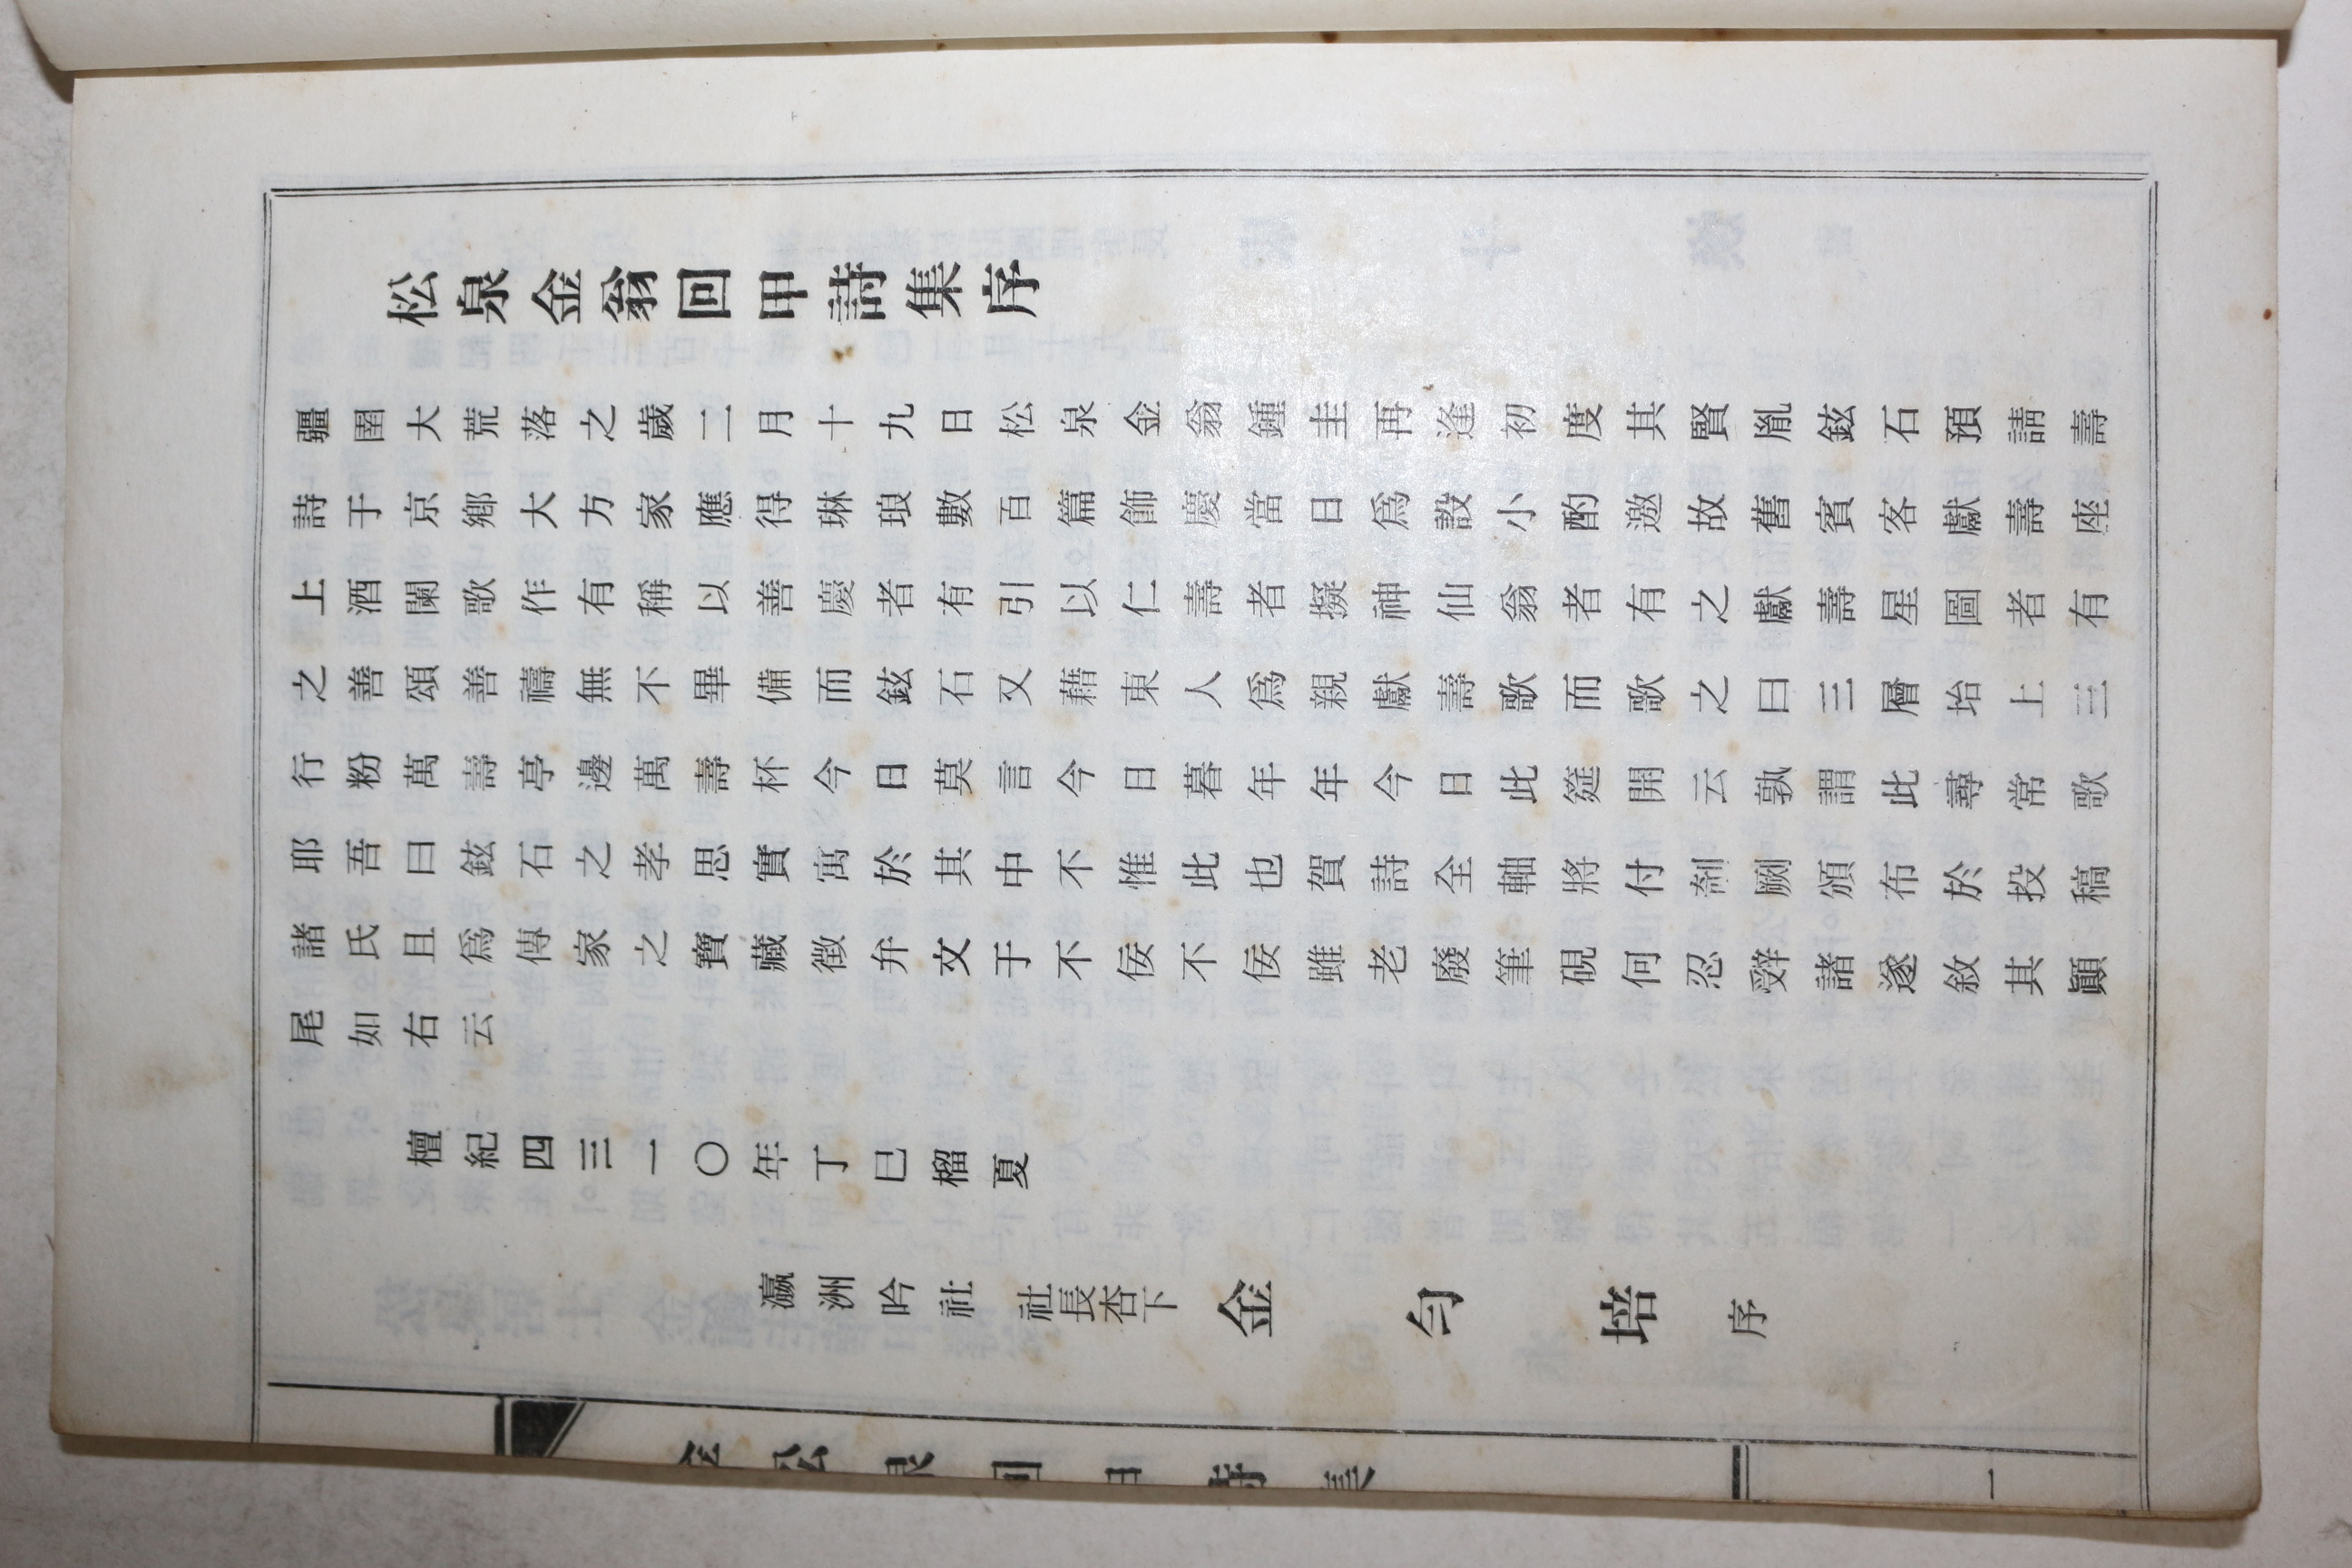 松泉金翁回甲詩集序
疆圉大荒落之歲二月十九日松泉金翁鍾圭再逢初度其賢胤鉉石預請壽
詩于京鄕大方家應得琳琅數百篇飾慶當日爲設小酌邀故舊賓客獻壽座
上酒闌歌作有稱以善慶者有引以仁壽者擬神仙翁者有之獻壽星圖者有
之善頌善禱無不畢備而鉉石又藉東人爲親獻壽歌而歌之曰三層坮上三
行粉萬壽亭邊萬壽杯今日莫言今日暮年年今日此筵開云孰謂此尋常歌
耶吾曰鉉石之孝思實寓於其中不惟此也賀詩全軸將付剞劂頒布於投稿
諸氏且爲傳家之寶藏徵弁文于不佞不佞雖老廢筆硯何忍辭諸遂敘其顚
尾如右云
檀紀四三一〇年丁巳榴夏
瀛洲吟社社長杏下金勻培序
金公泉回甲詩集
一